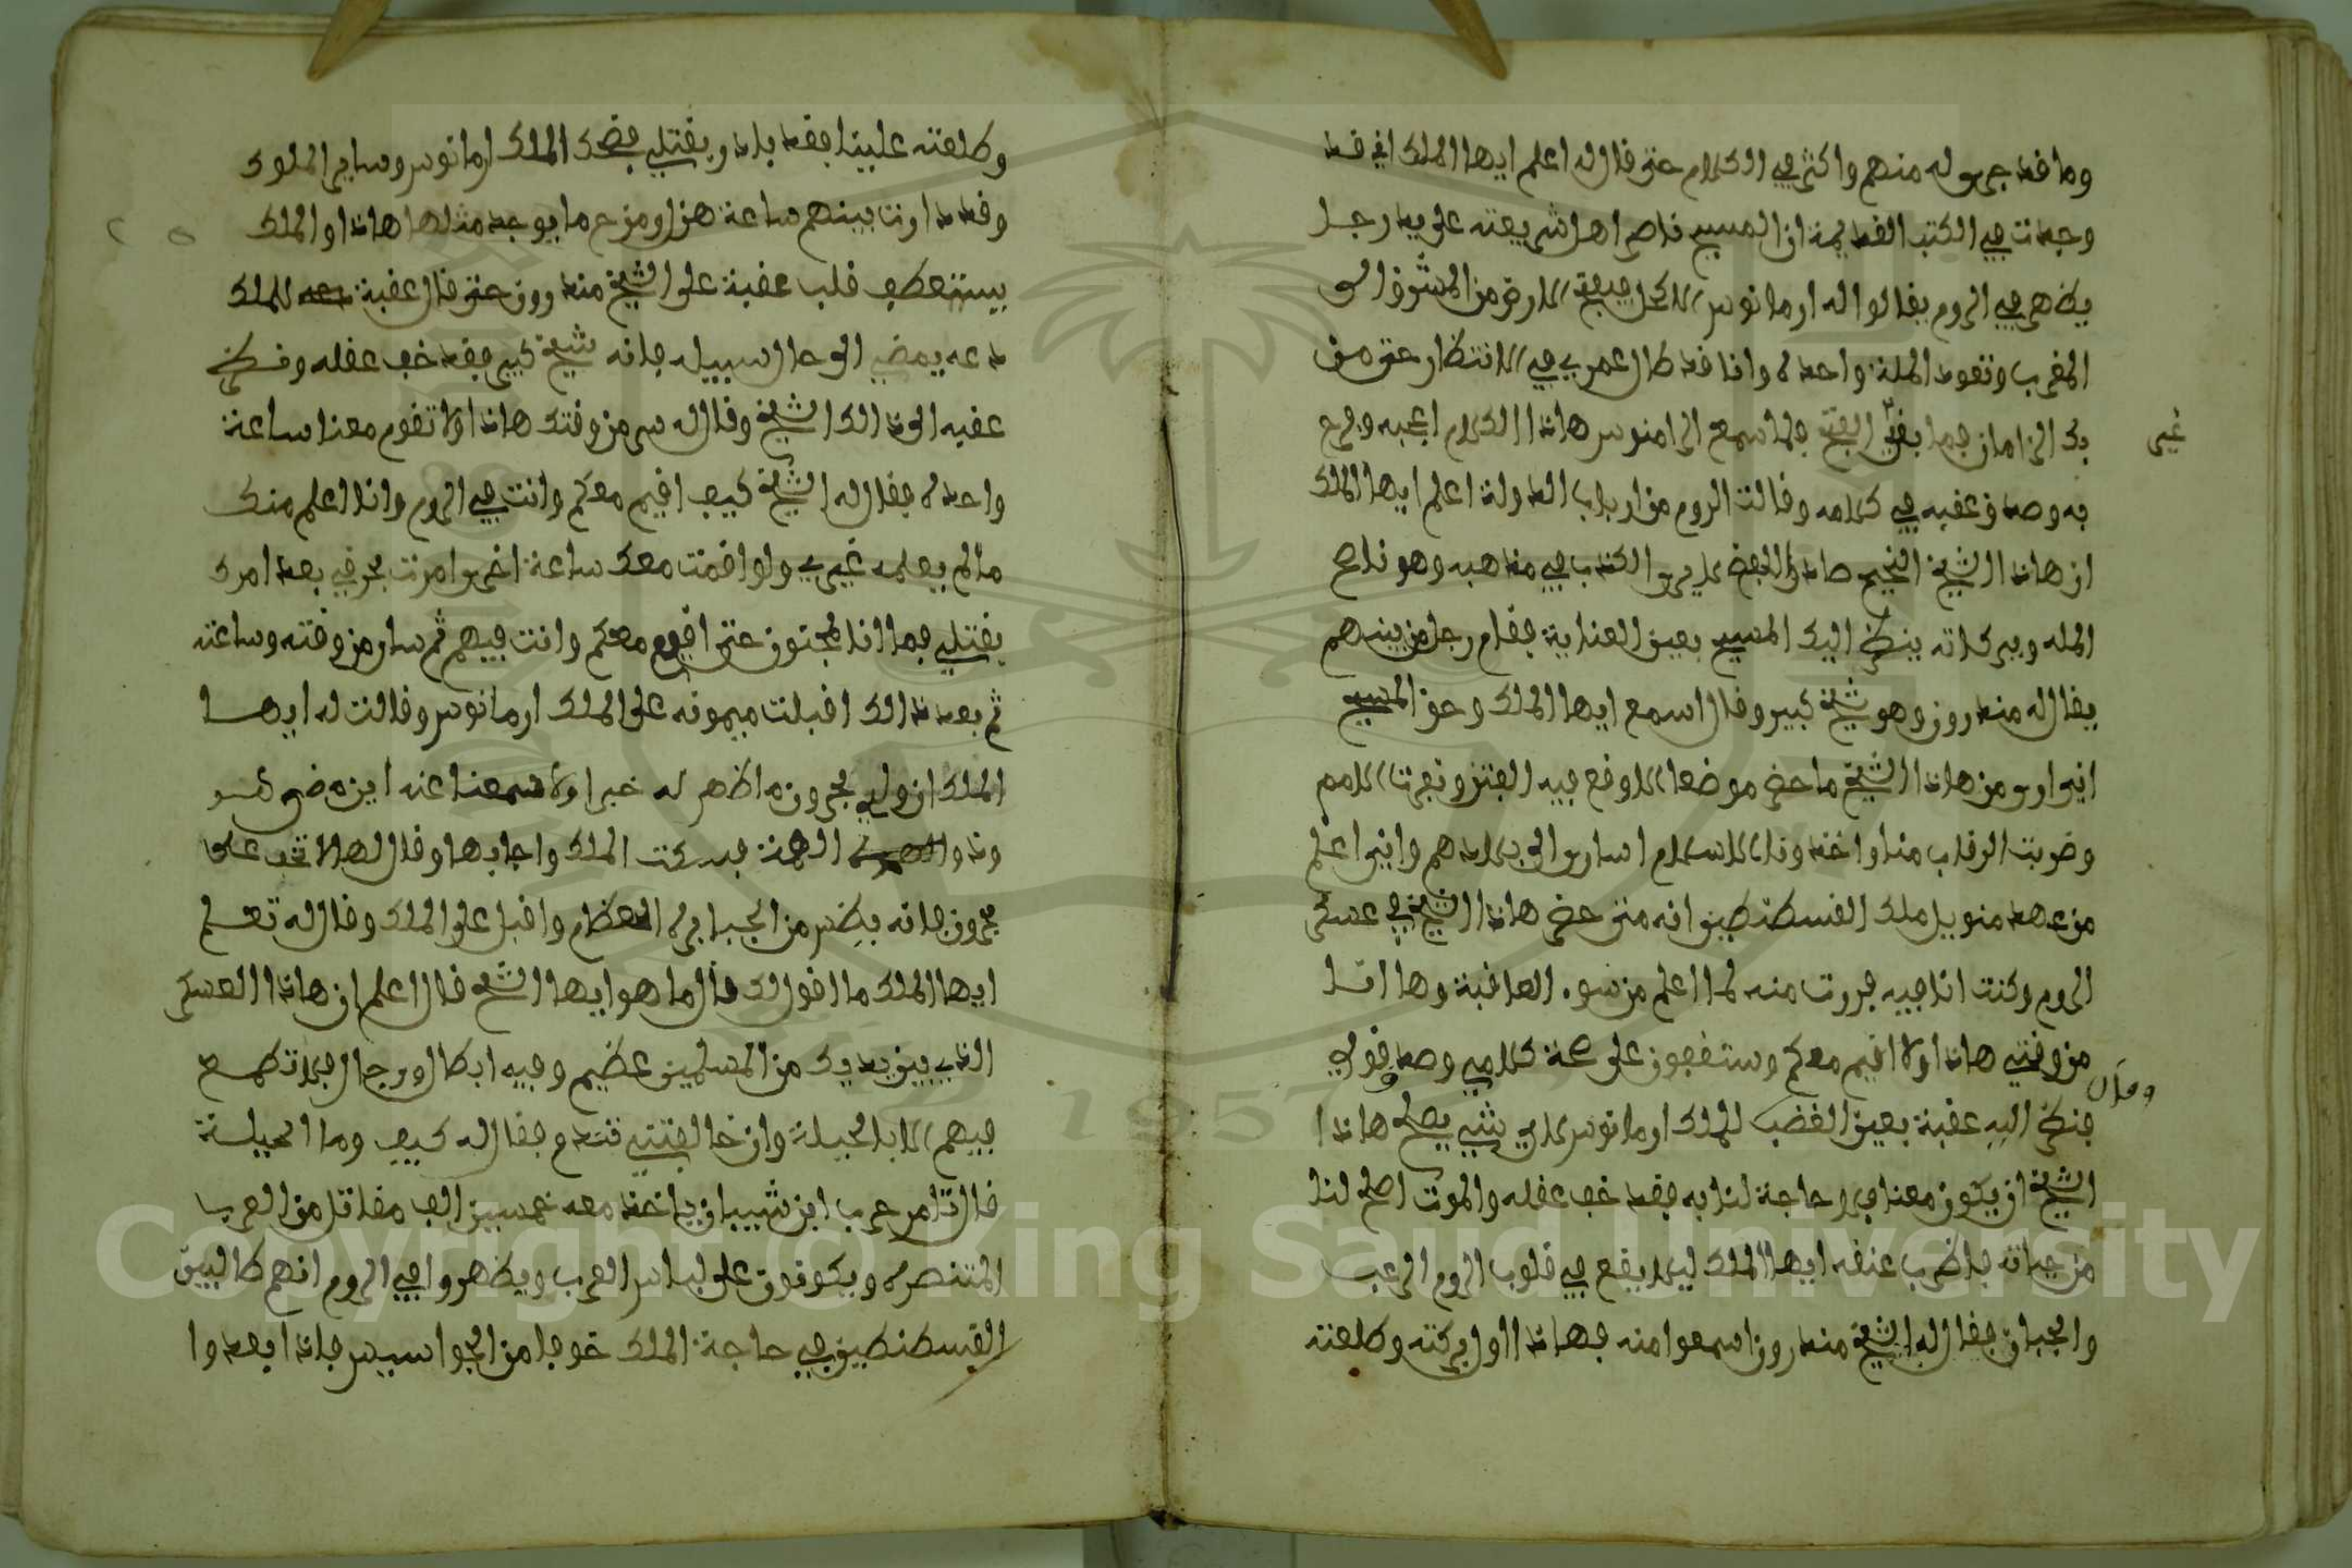 وما قد جرى له منهم واكثر في الكلام حتى قال له اعلم ايها الملك اني قد
وجدت في الكتب القديمة ان المسيح ناصر اهل شريعته على يد رجل
يظهر في الروم يقالوا له ارمانوس الاكحل يملك الارض من المشرق الى
المغرب وتعود الملة واحدة وانا قد طال عمري في الانتظار حتى من
بك الزامان فما بقى الفتح فلما سمع الرامنوس هاذا الكلام اعجبه وفرح
غير
به وصدق عقبه في كلامه وقالت الروم من ارباب الدولة اعلم ايها الملك
ان هاذا الشيخ الفخيم صاحب الكتاب في مذاهبه وهو ناصح
المله وببركاته ينظر اليك المسيح بعين العناية فقام رجل من بينهم
يقال له مندرون وهو شيخ كبير وقال اسمع ايها الملك وحق المسيح
اني ارى من هاذا الشيخ ما حضر موضعا الا وقع فيه الفتن ونفرت الامم
وضربت الرقاب منا واخذونا الاسلام اسارى الى بلادهم واني اعلم
من عهد منويل ملك القسطنطين انه متى حضر هاذا الشيخ في عسكر
الروم وكنت انا فيه فررت منه لما اعلم من سوء العاقبة وها انا
من وقتي هاذا ولا اقيم معكم وستقفون على صحة كلامي وصدق قولي
وقال
فنظر اليه عقبة بعين الغضب للملك ارمانوس لاي شيء يصلح هاذا
الشيخ ان يكون معنا فلا حاجة لنا به فقد خف عقله والموت اصلح لنا
من حياته فاضرب عنقه ايها الملك ليلا يقع في قلوب الروم الرعب
والجبان فقال له الشيخ مندرون اسمعوا منه فهاذا اول بركته وطلعته
وطلعته علينا فقد بدا ويقتلي فضحك الملك ارمانوس وساير الملوك
وقد دارت بينهم ساعة هزل ومزح ما يوجد مثلها هاذا والملك
يستعطف قلب عقبة على الشيخ مندرون حتى قال عقبة للملك
دعه يمضي الى حال سبيله فانه شيخ كبير فقد خف عقله ونظر
عقبه الى ذالك الشيخ وقال له سر من وقتك هاذا ولا تقوم معنا ساعة
واحدة فقال له الشيخ كيف اقيم معكم وانت في الروم وانا اعلم منك
ما لم يعلمه غيري ولو اقمت معك ساعة اخرى امرت بحرقي بعد امرك
بقتلي فما انا مجنون حتى اقوم معكم وانت فيهم ثم سار من وقته وساعته
ثم بعد ذالك اقبلت ميمونه على الملك ارمانوس وقالت له ايها
الملك ان ولدي بحرون ما ظهر له خبرا ولا سمعنا عنه اين مضى هو
وذوا الهمة فسكت الملك واجابها وقال لها لا تخف على
بحرون فانه بطرس من الجبابرة العظام واقبل على الملك وقال له تعلم
ايها الملك ما اقول لك قال ما هو ايها الشيخ قال اعلم ان هاذا العسكر
الذي بين يديك من المسلمين عظيم وفيه ابطال ورجال فلا تطمع
فيهم الا بالحيلة وان خالفتني تندم فقال له كيف وما الحيلة
قال تامر حرب ابن شيبان ياخذ معه خمسين الف مقاتل من العرب
المتنصرة ويكونون على لباس العرب ويظهروا في الروم انهم طالبين
القسطنطين في حاجة الملك خوفا من الجواسيس فاذا ابعدوا